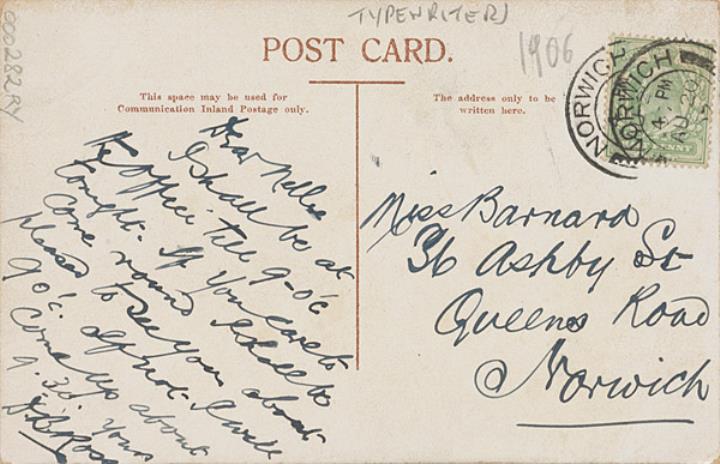 000282RY
TYPEWRITERS
1906
POST CARD.
This space may be used for
Communication Inland Postage only.
The address only to be
written here.
NORWICH
NORWICH
4 PM
AU 20
Dear Nellie
I shall be at
the office till 9-0'c
tonight. If you care to
come round I shall be
pleased to see you about
9 o'c. If not I will
come up about
9.30. Yours
Miss Barnard
36 Ashby St
Queens Road
Norwich